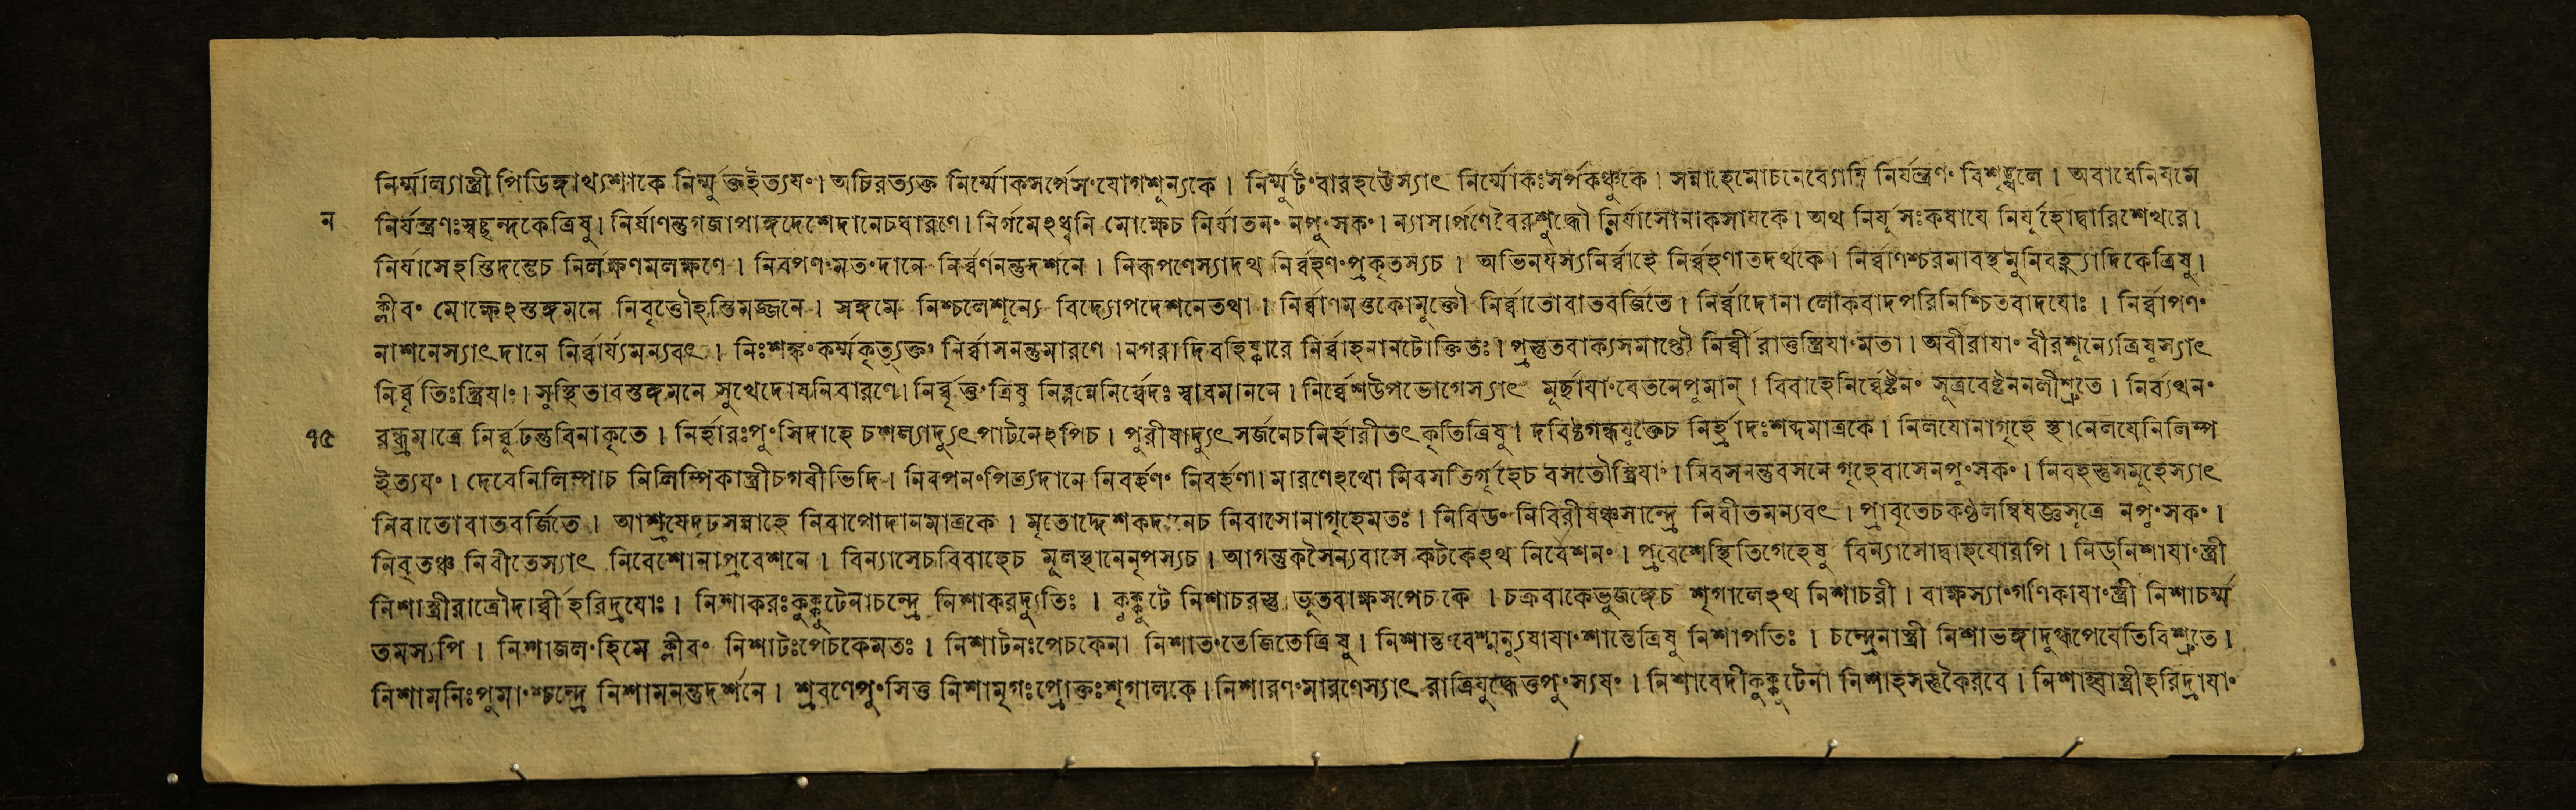 নির্ম্মাল্যাস্ত্রী পিডিঙ্গাখ্যশাকে নির্ম্মুক্তইত্যয॰। অচিরত্যক্ত নির্ম্মোকসর্পেস॰যোগশূন্যকে। নির্ম্মুট॰বারহট্টেস্যাৎ নির্ম্মোকঃসর্পকঞ্চুকে। সন্নাহেমোচনেব্যোম্নি নির্যন্ত্রণ॰ বিশৃঙ্খলে। অবাধেনিযমে
ন নির্যন্ত্রণঃস্বচ্ছন্দকেত্রিষু। নির্যাণন্তুগজাপাঙ্গদেশেদানেচধারণে। নির্গমেঽধ্বনি মোক্ষেচ নির্যাতন॰ নপু॰সক॰। ন্যাসার্পণেবৈরশুদ্ধৌ নির্যাসোনাকসাযকে। অথ নির্যূসঃকষাযে নির্যূহোদ্বারিশেখরে।
নির্যাসেহস্তিদন্তেচ নির্লক্ষণমলক্ষণে। নিবপণ॰মত॰দানে নির্ব্বর্ণনন্তুদর্শনে। নিরূপণেস্যাদথ নির্ব্বহণ॰প্রকৃতস্যচ। অভিনযস্যনির্ব্বাহে নির্ব্বহণাতদর্থকে। নির্ব্বাণশ্চরমাবস্থমুনিবহ্ন্যাদিকেত্রিষু।
ক্লীব॰ মোক্ষেঽস্তঙ্গমনে নিবৃত্তৌহস্তিমজ্জনে। সঙ্গমে নিশ্চলেশূন্যে বিদ্যোপদেশনেতথা। নির্ব্বাণমস্তকোমুক্তৌ নির্ব্বাতোবাতবর্জিতে। নির্ব্বাদোনা লোকবাদপরিনিশ্চিতবাদযোঃ। নির্ব্বাপণ॰
নাশনেস্যাৎদানে নির্ব্বার্য্যমন্যবৎ। নিঃশঙ্ক॰কর্ম্মকৃত্যুক্ত॰ নির্ব্বাসনন্তুমারণে।নগরাদিবহিষ্কারে নির্ব্বাহনানটোক্তিতঃ। প্রস্তুতবাক্যসমাপ্তৌ নির্ব্বীরাতুস্ত্রিযা॰মতা। অবীরাযা॰ বীরশূন্যেত্রিষুস্যাৎ
নির্বৃতিঃস্ত্রিযা॰। সুস্থিতাবস্তঙ্গমনে সুখেদোষনিবারণে। নির্ব্বৃত্ত॰ত্রিষু নিষ্পন্নেনির্ব্বেদঃ স্বাবমাননে। নির্ব্বেশউপভোগেস্যাৎ মূর্চ্ছাযা॰বেতনেপুমান্। বিবাহেনির্ব্বেষ্টন॰ সূত্রবেষ্টননলীশ্রুতে। নির্ব্যথন॰
৭৫ রন্ধ্রমাত্রে নির্ব্যূঢন্তুবিনাকৃতে। নির্হারঃপু॰সিদাহে চশল্যাদ্যুৎপাটনেঽপিচ। পুরীষাদ্যুৎসর্জনেচনির্হারীতৎকৃতিত্রিষু। দবিষ্ঠগন্ধযুক্তেচ নির্হ্রাদঃশব্দমাত্রকে। নিলযোনাগৃহে স্থানেলযেনিলিম্প
ইত্যয॰। দেবেনিলিম্পাচ নিলিম্পিকাস্ত্রীচগবীভিদি। নিবপন॰পিত্র্যদানে নিবর্হণ॰ নিবর্হণা।মারণেঽথো নিবসতির্গৃহেচ বসতৌস্ত্রিযা॰। নিবসনন্তুবসনে গৃহেবাসেনপু॰সক॰। নিবহস্তুসমূহেস্যাৎ
নিবাতোবাতবর্জিতে। আশ্রযেদৃঢসন্নাহে নিবাপোদানমাত্রকে। মৃতোদ্দেশকদানেচ নিবাসোনাগৃহেমতঃ। নিবিড॰নিবিরীষঞ্চসান্দ্রে নিবীতমন্যবৎ। প্রাবৃতেচকণ্ঠলম্বিযজ্ঞসূত্রে নপু॰সক॰।
নিবৃতঞ্চ নিবীতেস্যাৎ নিবেশোনাপ্রবেশনে। বিন্যাসেচবিবাহেচ মূলস্থানেনৃপস্যচ। আগন্তুকসৈন্যবাসে কটকেঽথ নিবেশন॰। প্রবেশেস্থিতিগেহেষু বিন্যাসোদ্বাহযোরপি। নিড্নিশাযা॰স্ত্রী
নিশাস্ত্রীরাত্রৌদার্ব্বীহরিদ্রযোঃ। নিশাকরঃকুক্কুটেনাচন্দ্রে নিশাকরদ্যুতিঃ। কুক্কুটে নিশাচরস্তু ভূতরাক্ষসপেচকে। চক্রবাকেভুজঙ্গেচ শৃগালেঽথ নিশাচরী। রাক্ষস্যা॰গণিকাযা॰স্ত্রী নিশাচর্ম্ম
তমস্যপি। নিশাজল॰হিমে ক্লীব॰ নিশাটঃপেচকেমতঃ। নিশাটনঃপেচকেনা নিশাত॰তেজিতেত্রিষু। নিশান্ত॰বেশ্মন্যুষাযা॰শান্তেত্রিষু নিশাপতিঃ। চন্দ্রেনাস্ত্রী নিশাভঙ্গাদুগ্ধপেযেতিবিশ্রুতে।
নিশামনিঃপুমা॰শ্চন্দ্রে নিশামনন্তুদর্শনে। শ্রবণেপু॰সিতু নিশামৃগঃপ্রোক্তঃশৃগালকে।নিশারণ॰মারণেস্যাৎ রাত্রিযুদ্ধেত্তপু॰স্যয॰। নিশাবেদীকুক্কুটেনা নিশাহসস্তুকৈরবে। নিশাহ্বাস্ত্রীহরিদ্রাযা॰